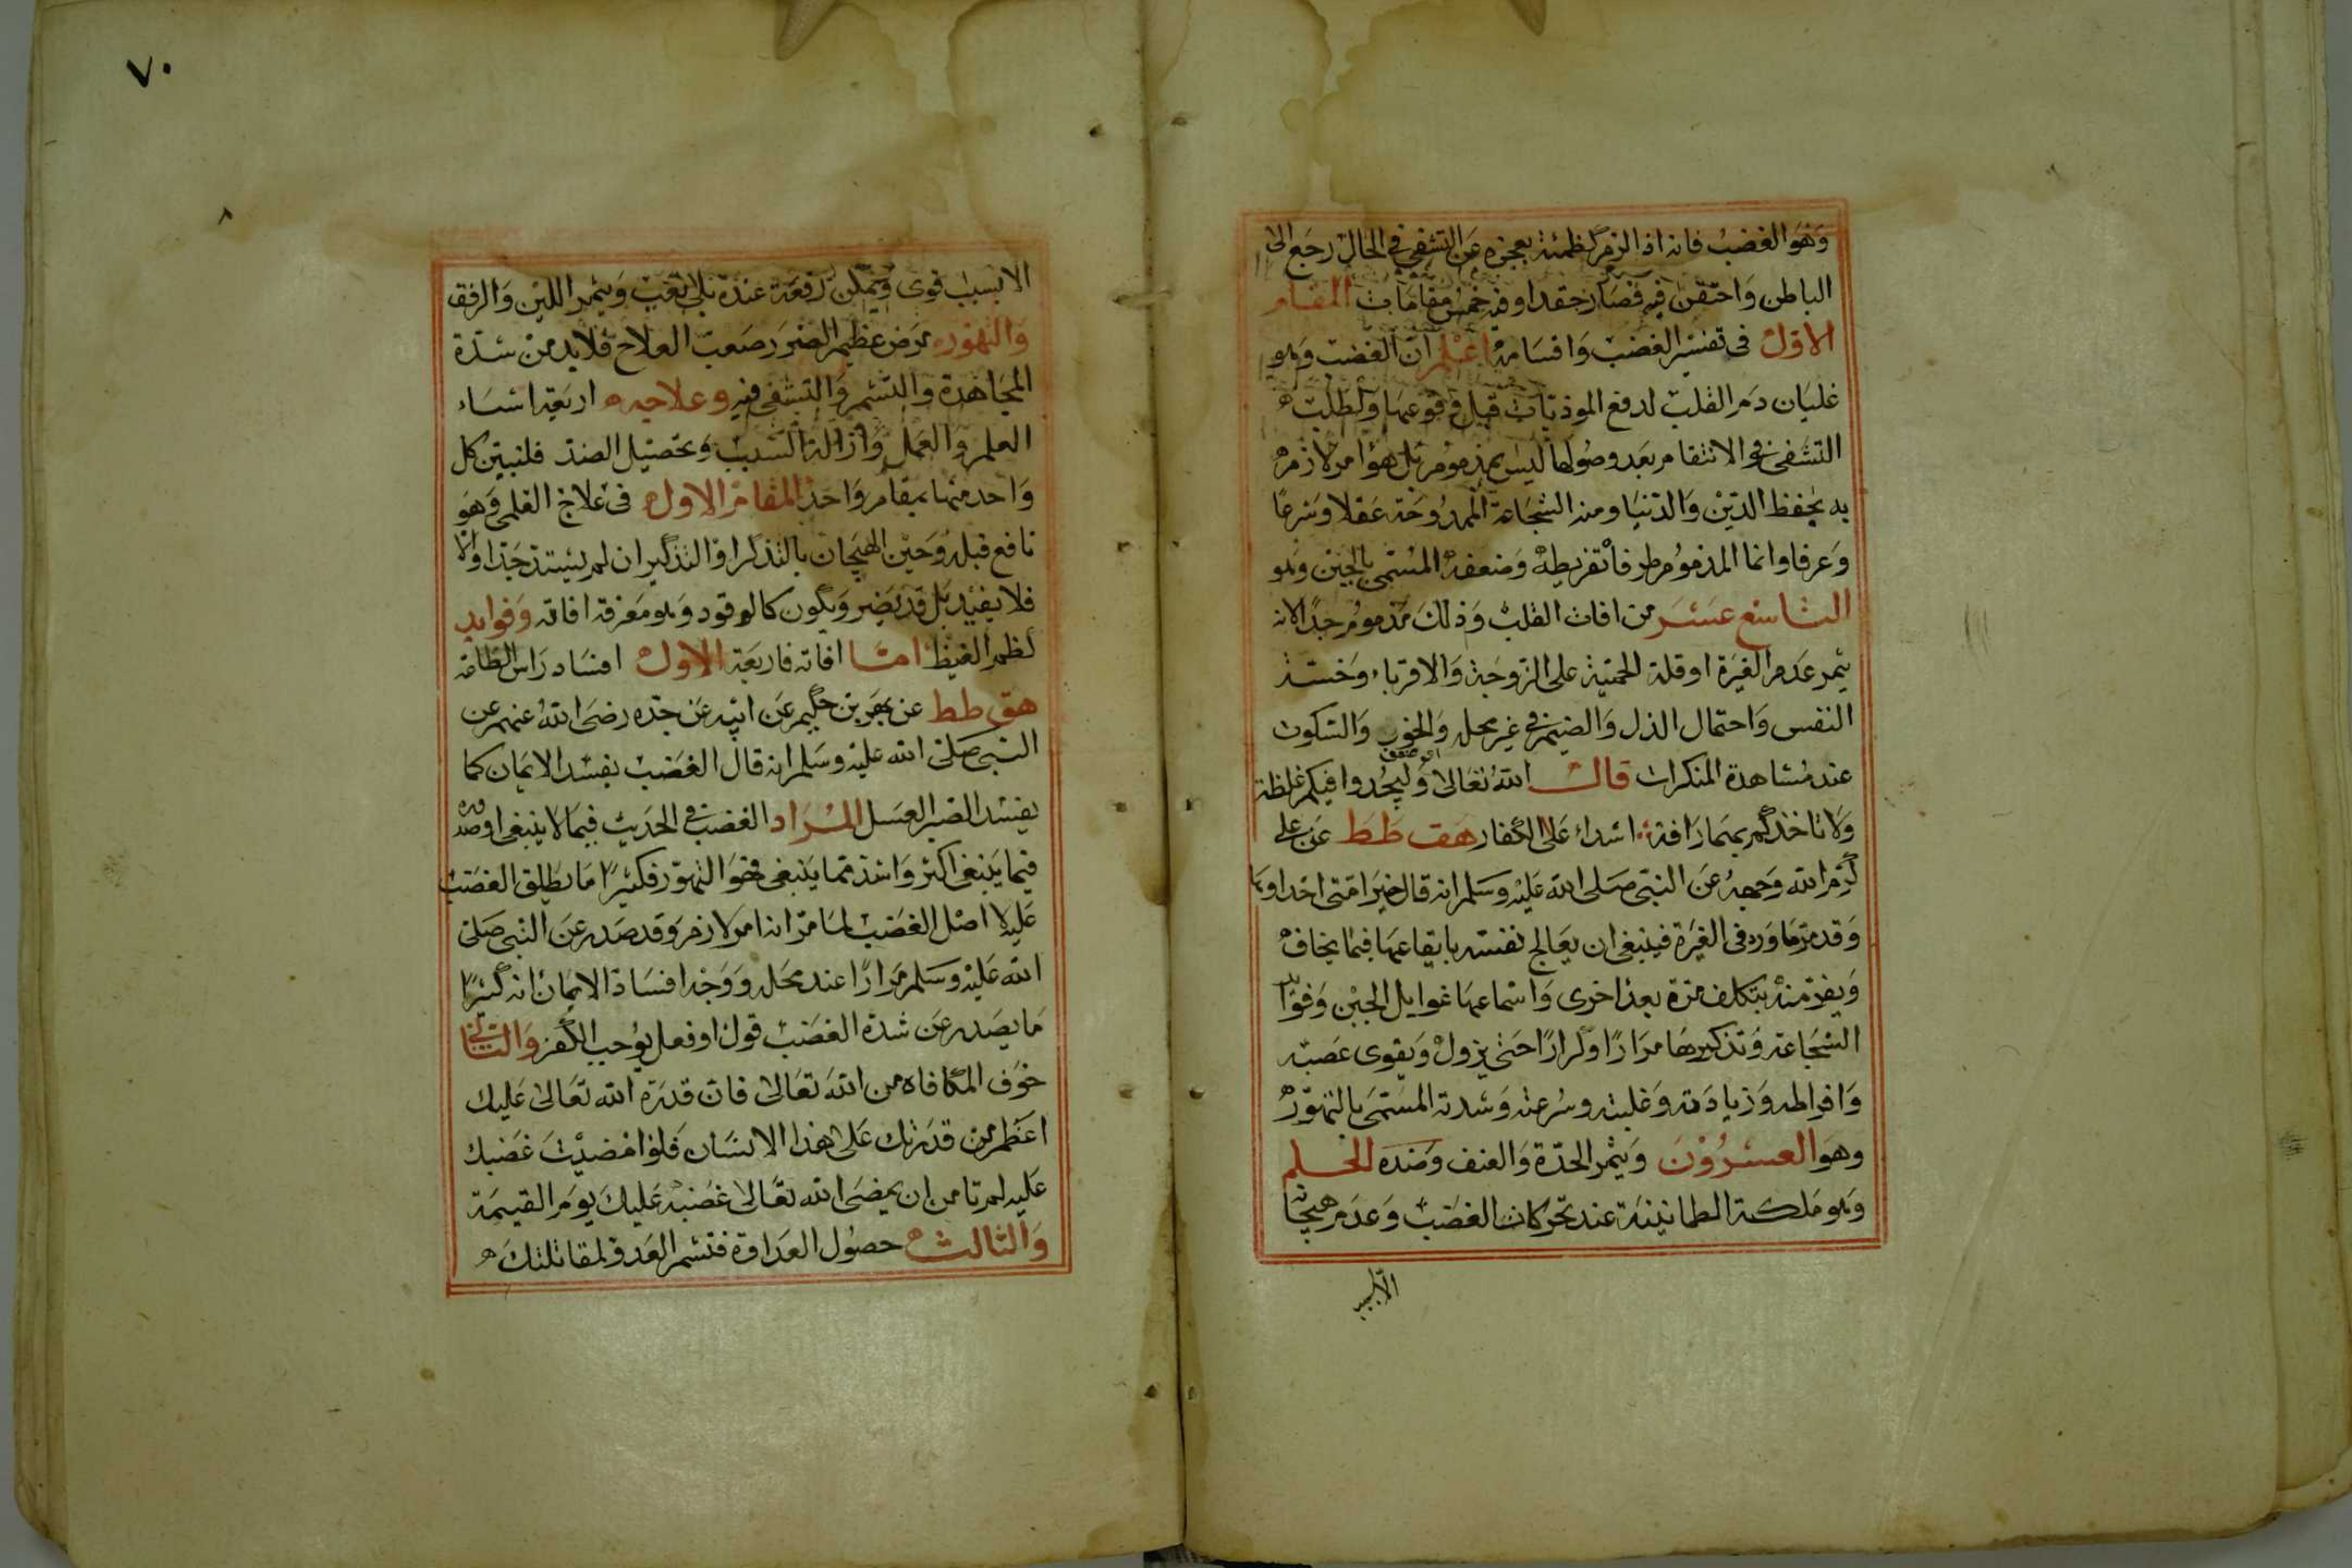 وهو الغضب فانه اذا لزم كظمه بعجزه عن التشفى فى الحال رجع الى
الباطن واحتقن فيه فصار حقدا وفيه خمس مقامات المقام
الاول فى تفسير الغضب واقسامه اعلم ان الغضب وهو
غليان دم القلب لدفع الموذيات قبل وقوعها ولطلب
التشفى والانتقام بعد وصولها ليس بمذموم بل هو امر لازم
به يحفظ الدين والدنيا ومنه الشجاعة الممدوحة عقلا وشرعا
وعرفا وانما المذموم طرفاه تفريطه وضعفه المسمى بالجبن وهو
التاسع عشر من افات القلب وذلك مذموم جدا لانه
يثمر عدم الغيرة او قلة الحمية على الزوجة والاقرباء وخسة
النفس واحتمال الذل والضيم فى غير محله والخور والسكوت
اى ضعف
عند مشاهدة المنكرات قال الله تعالى وليجدوا فيكم غلظة
ولا تاخذكم بهما رافة اشداء على الكفار هق طط عن على
كرم الله وجهه عن النبى صلى الله عليه وسلم انه قال خير امتى احداوها
وقد مر ما ورد فى الغيرة فينبغى ان يعالج نفسه بايقاعها فيما يخاف
ويفر منه بتكلف مرة بعد اخرى واسماعها غوايل الجبن وفوايد
الشجاعة وتذكيرها مرارا وكرارا حتى يزول ويقوى غضبه
وافراطه وزيادته وغلبته وسرعته وشدته المسمى بالتهور
وهو العشرون ويثمر الحدة والعنف وضده الحلم
وهو ملكة الطمانينة عند تحركات الغضب وعدم هيجانه
الا بسبب
٧٠
الا بسبب قوى ويمكن دفعه عنده بلا تعب ويثمر اللين والرفق
والتهور مرض عظيم الضرر صعب العلاج فلا بد من شدة
المجاهدة والتشمر والتشفى فيه وعلاجه اربعة اشياء
العلم والعمل وازالة السبب وتحصيل الضد فلنبين كل
واحد منها بمقام واحد المقام الاول فى علاج العلمى وهو
نافع قبله وحين الهيجان بالتذكر او التذكير ان لم يشتد جدا والا
فلا يفيد بل قد يضر ويكون كالوقود وهو معرفة افاته وفوايد
كظم الغيظ اما افاته فاربعة الاول افساد راس الطاعة
هق طط عن بهز بن حكيم عن ابيه عن جده رضى الله عنهم عن
النبى صلى الله عليه وسلم انه قال الغضب يفسد الايمان كما
يفسد الصبر العسل المراد الغضب فى الحديث فيما لا ينبغى او صدوره
فيما ينبغى اكثر واشد مما ينبغى فهو التهور فكثيرا ما يطلق الغضب
عليه لا اصل الغضب لما مر انه امر لازم وقد صدر عن النبى صلى
الله عليه وسلم مرارا عند محله ووجه افساده الايمان انه كثيرا
ما يصدر عن شدة الغضب قول او فعل يوجب الكفر والثانى
خوف المكافاه من الله تعالى فان قدرة الله تعالى عليك
اعظم من قدرتك على هذا الانسان فلو امضيت غضبك
عليه لم تامن ان يمضى الله تعالى غضبه عليك يوم القيمة
والثالث حصول العداوة فتشمر العدو لمقابلتك